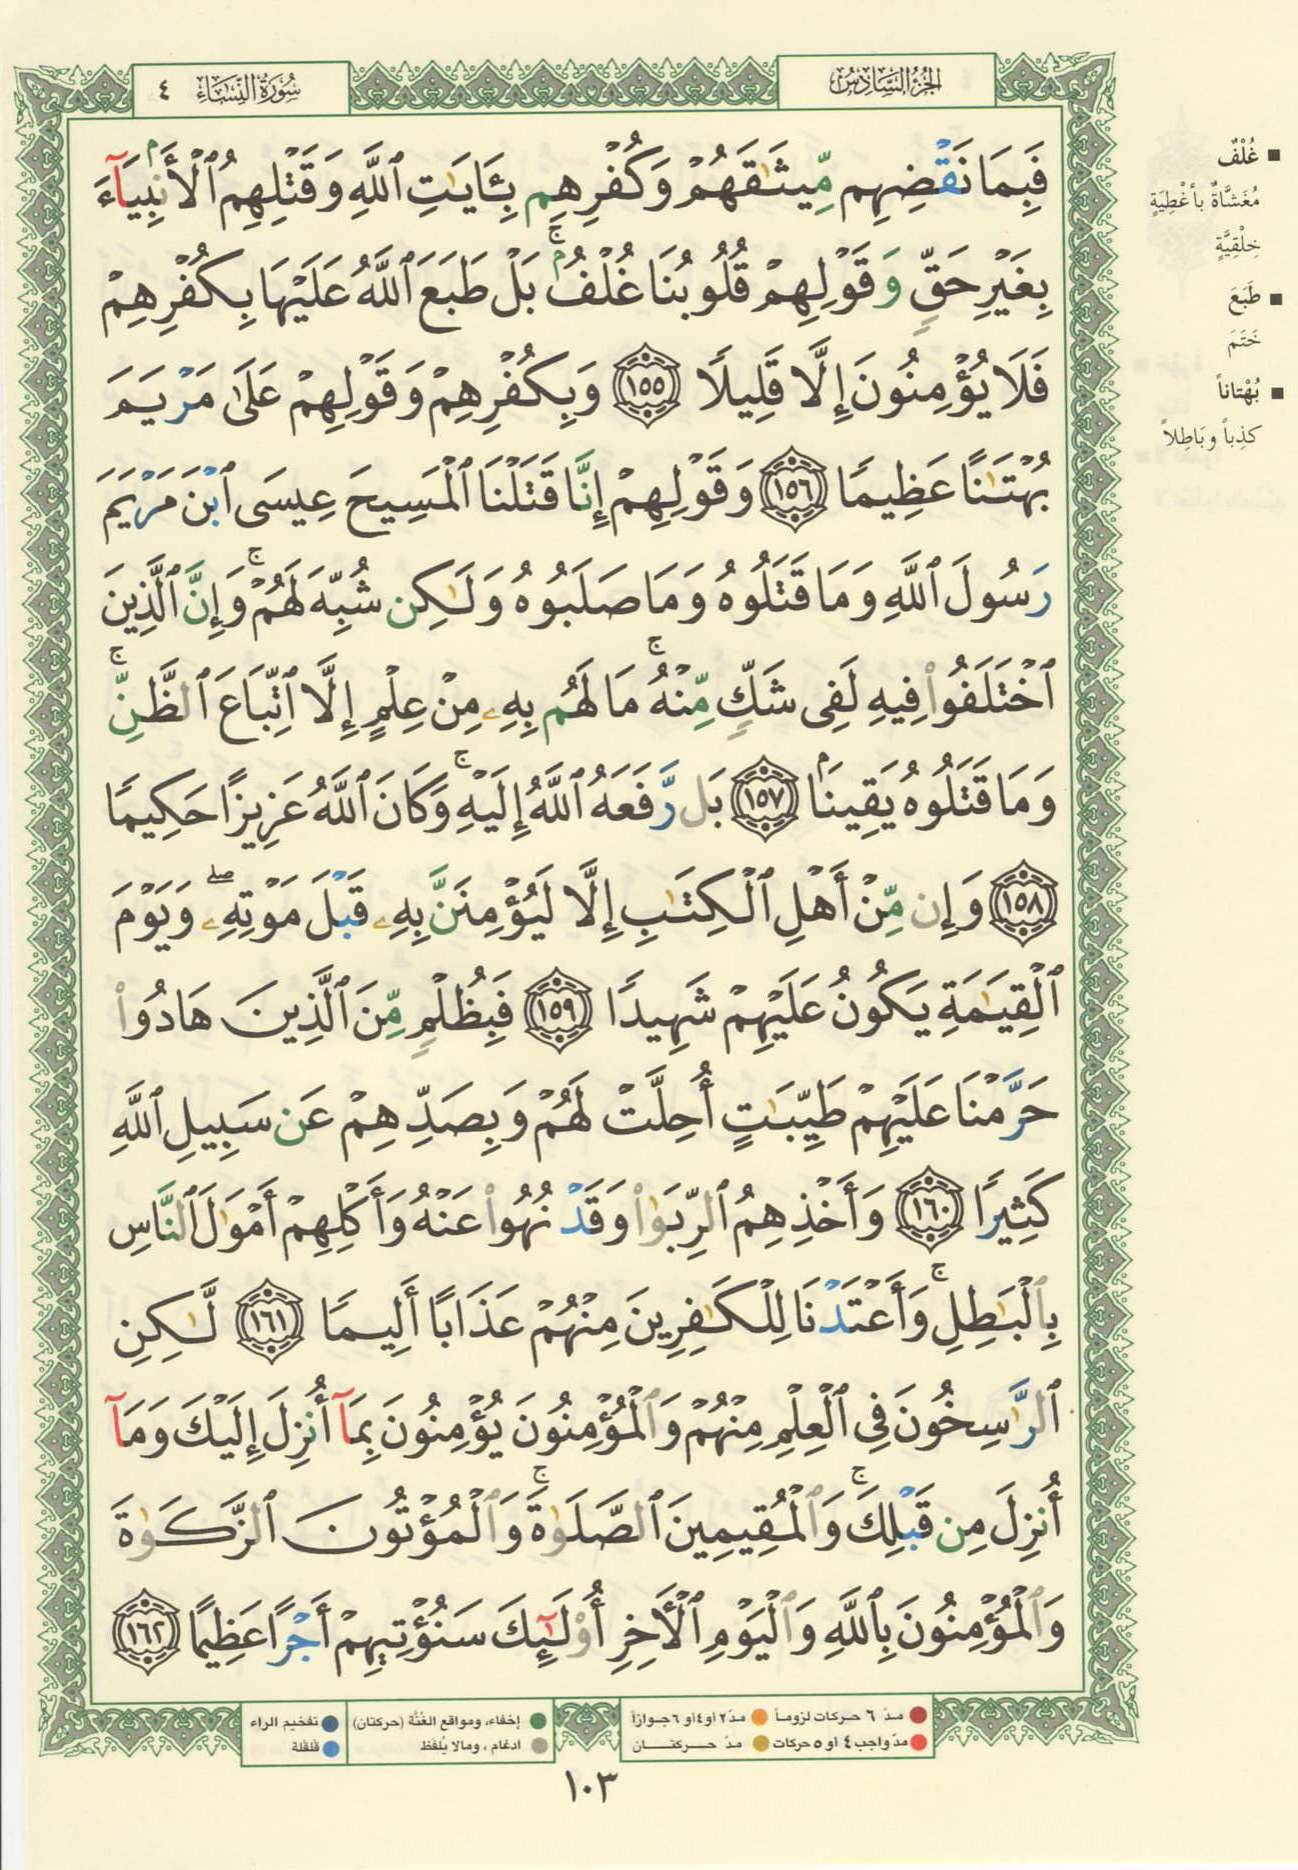 الجُزْءُ السَّادِسُ
سُورَةُ النِّسَاءِ ٤
فَبِمَا نَقْضِهِم مِّيثَٰقَهُمْ وَكُفْرِهِم بِـَٔايَٰتِ ٱللَّهِ وَقَتْلِهِمُ ٱلْأَنۢبِيَآءَ
بِغَيْرِ حَقٍّ وَقَوْلِهِمْ قُلُوبُنَا غُلْفُۢ ۚ بَلْ طَبَعَ ٱللَّهُ عَلَيْهَا بِكُفْرِهِمْ
فَلَا يُؤْمِنُونَ إِلَّا قَلِيلًا ١٥٥ وَبِكُفْرِهِمْ وَقَوْلِهِمْ عَلَىٰ مَرْيَمَ
بُهْتَٰنًا عَظِيمًا ١٥٦ وَقَوْلِهِمْ إِنَّا قَتَلْنَا ٱلْمَسِيحَ عِيسَى ٱبْنَ مَرْيَمَ
رَسُولَ ٱللَّهِ وَمَا قَتَلُوهُ وَمَا صَلَبُوهُ وَلَٰكِن شُبِّهَ لَهُمْ ۚ وَإِنَّ ٱلَّذِينَ
ٱخْتَلَفُوا۟ فِيهِ لَفِى شَكٍّ مِّنْهُ ۚ مَا لَهُم بِهِۦ مِنْ عِلْمٍ إِلَّا ٱتِّبَاعَ ٱلظَّنِّ ۚ
وَمَا قَتَلُوهُ يَقِينَۢا ١٥٧ بَل رَّفَعَهُ ٱللَّهُ إِلَيْهِ ۚ وَكَانَ ٱللَّهُ عَزِيزًا حَكِيمًا
١٥٨ وَإِن مِّنْ أَهْلِ ٱلْكِتَٰبِ إِلَّا لَيُؤْمِنَنَّ بِهِۦ قَبْلَ مَوْتِهِۦ ۖ وَيَوْمَ
ٱلْقِيَٰمَةِ يَكُونُ عَلَيْهِمْ شَهِيدًا ١٥٩ فَبِظُلْمٍ مِّنَ ٱلَّذِينَ هَادُوا۟
حَرَّمْنَا عَلَيْهِمْ طَيِّبَٰتٍ أُحِلَّتْ لَهُمْ وَبِصَدِّهِمْ عَن سَبِيلِ ٱللَّهِ
كَثِيرًا ١٦٠ وَأَخْذِهِمُ ٱلرِّبَوٰا۟ وَقَدْ نُهُوا۟ عَنْهُ وَأَكْلِهِمْ أَمْوَٰلَ ٱلنَّاسِ
بِٱلْبَٰطِلِ ۚ وَأَعْتَدْنَا لِلْكَٰفِرِينَ مِنْهُمْ عَذَابًا أَلِيمًا ١٦١ لَّٰكِنِ
ٱلرَّٰسِخُونَ فِى ٱلْعِلْمِ مِنْهُمْ وَٱلْمُؤْمِنُونَ يُؤْمِنُونَ بِمَآ أُنزِلَ إِلَيْكَ وَمَآ
أُنزِلَ مِن قَبْلِكَ ۚ وَٱلْمُقِيمِينَ ٱلصَّلَوٰةَ ۚ وَٱلْمُؤْتُونَ ٱلزَّكَوٰةَ
وَٱلْمُؤْمِنُونَ بِٱللَّهِ وَٱلْيَوْمِ ٱلْأَخِرِ أُو۟لَٰٓئِكَ سَنُؤْتِيهِمْ أَجْرًا عَظِيمًا ١٦٢
■ غُلْفٌ
مُغَشَّاةٌ بأغْطِيَةٍ
خِلْقِيَّةٍ
■ طَبَعَ
خَتَمَ
■ بُهْتاناً
كذِباً وبَاطِلاً
مدّ ٦ حركات لزوماً مدّ ٢ او ٤ او ٦ جوازاً
مدّ واجب ٤ او ٥ حركات مدّ حركتــان
إخفاء، ومواقع الغُنَّة (حركتان) تفخيم الراء
ادغام ، ومالا يُلفَظ قلقلة
١٠٣